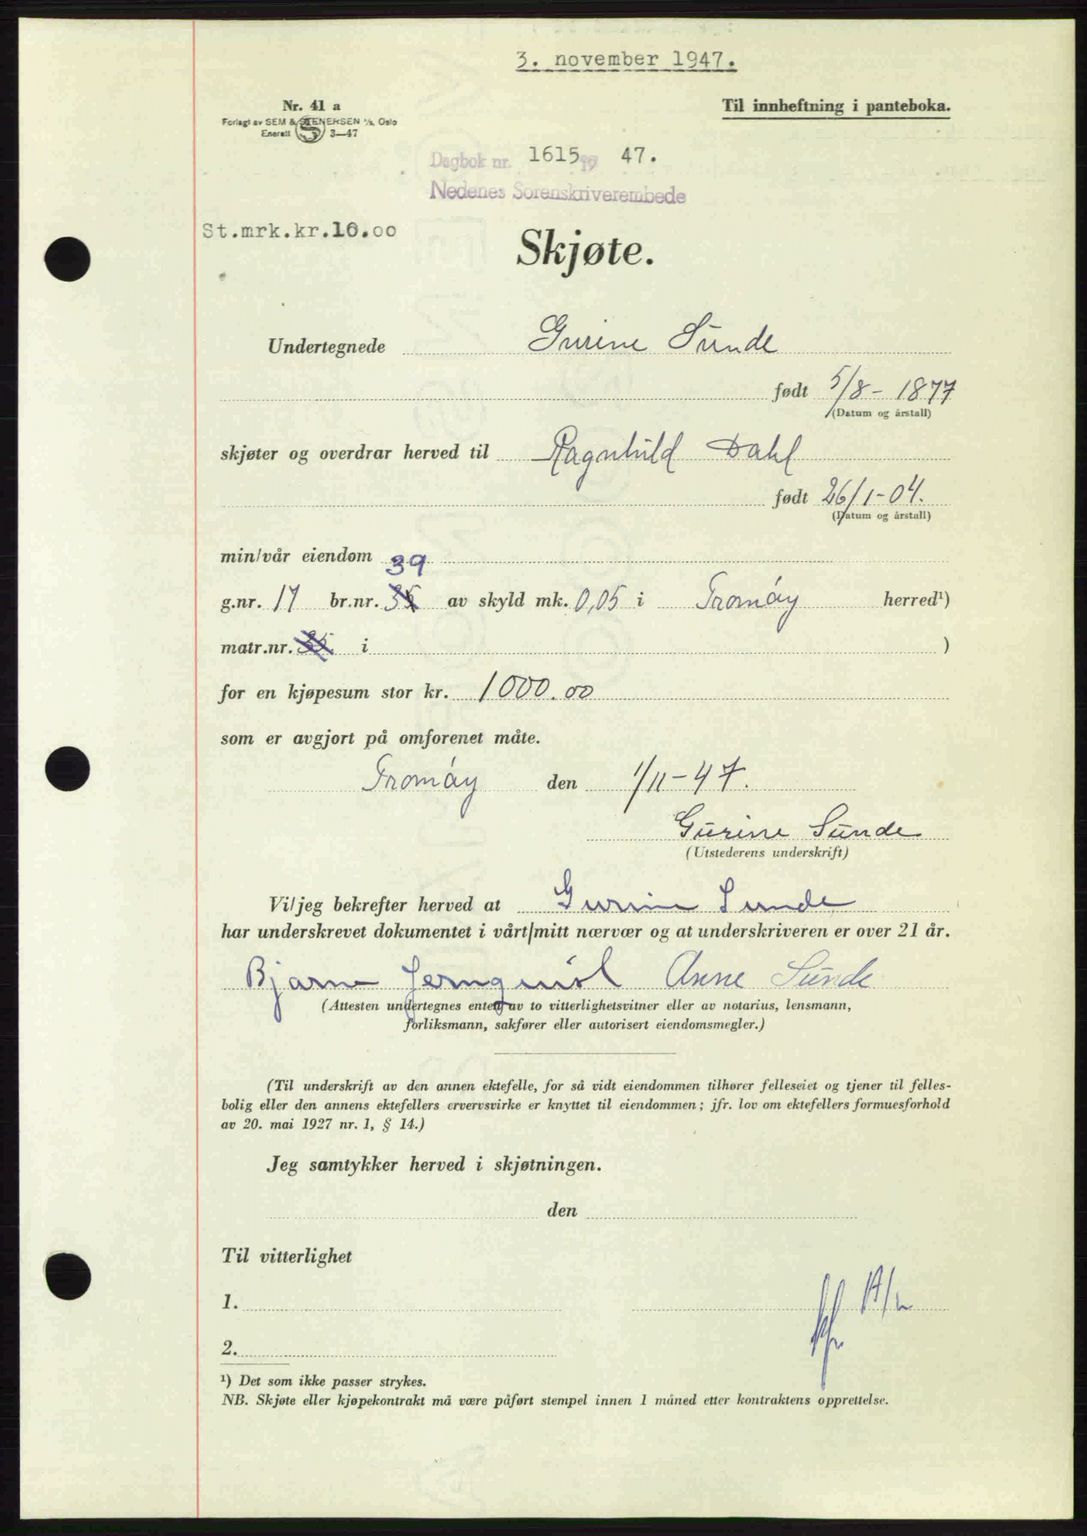 3. november 1947.
Nr. 41 a
Til innheftning i panteboka.
Forlagt av SEM & STENERSEN A/S, Oslo
Enerett S 3—47
Dagbok nr. 1615 19 47.
Nedenes Sorenskriverembede
St.mrk.kr.10.00
Skjøte.
Undertegnede Gurine Sunde
født 5/8 - 1877
(Datum og årstall)
skjøter og overdrar herved til Ragnhild Dahl
født 26/1-04.
(Datum og årstall)
min/vår eiendom
39
g.nr. 17 br.nr. 35 av skyld mk. 0,05 i Tromöy herred¹)
matr.nr. 35 i )
for en kjøpesum stor kr. 1000.00
som er avgjort på omforenet måte.
Tromöy den 1/11-47.
Gurine Sunde
(Utstederens underskrift)
Vi/jeg bekrefter herved at Gurine Sunde
har underskrevet dokumentet i vårt/mitt nærvær og at underskriveren er over 21 år.
Bjarne Jernquist Anne Sunde
(Attesten undertegnes enten av to vitterlighetsvitner eller av notarius, lensmann,
forliksmann, sakfører eller autorisert eiendomsmegler.)
(Til underskrift av den annen ektefelle, for så vidt eiendommen tilhører felleseiet og tjener til felles-
bolig eller den annens ektefellers ervervsvirke er knyttet til eiendommen; jfr. lov om ektefellers formuesforhold
av 20. mai 1927 nr. 1, § 14.)
Jeg samtykker herved i skjøtningen.
den
Til vitterlighet
1.
2.
¹) Det som ikke passer strykes.
NB. Skjøte eller kjøpekontrakt må være påført stempel innen 1 måned etter kontraktens opprettelse.